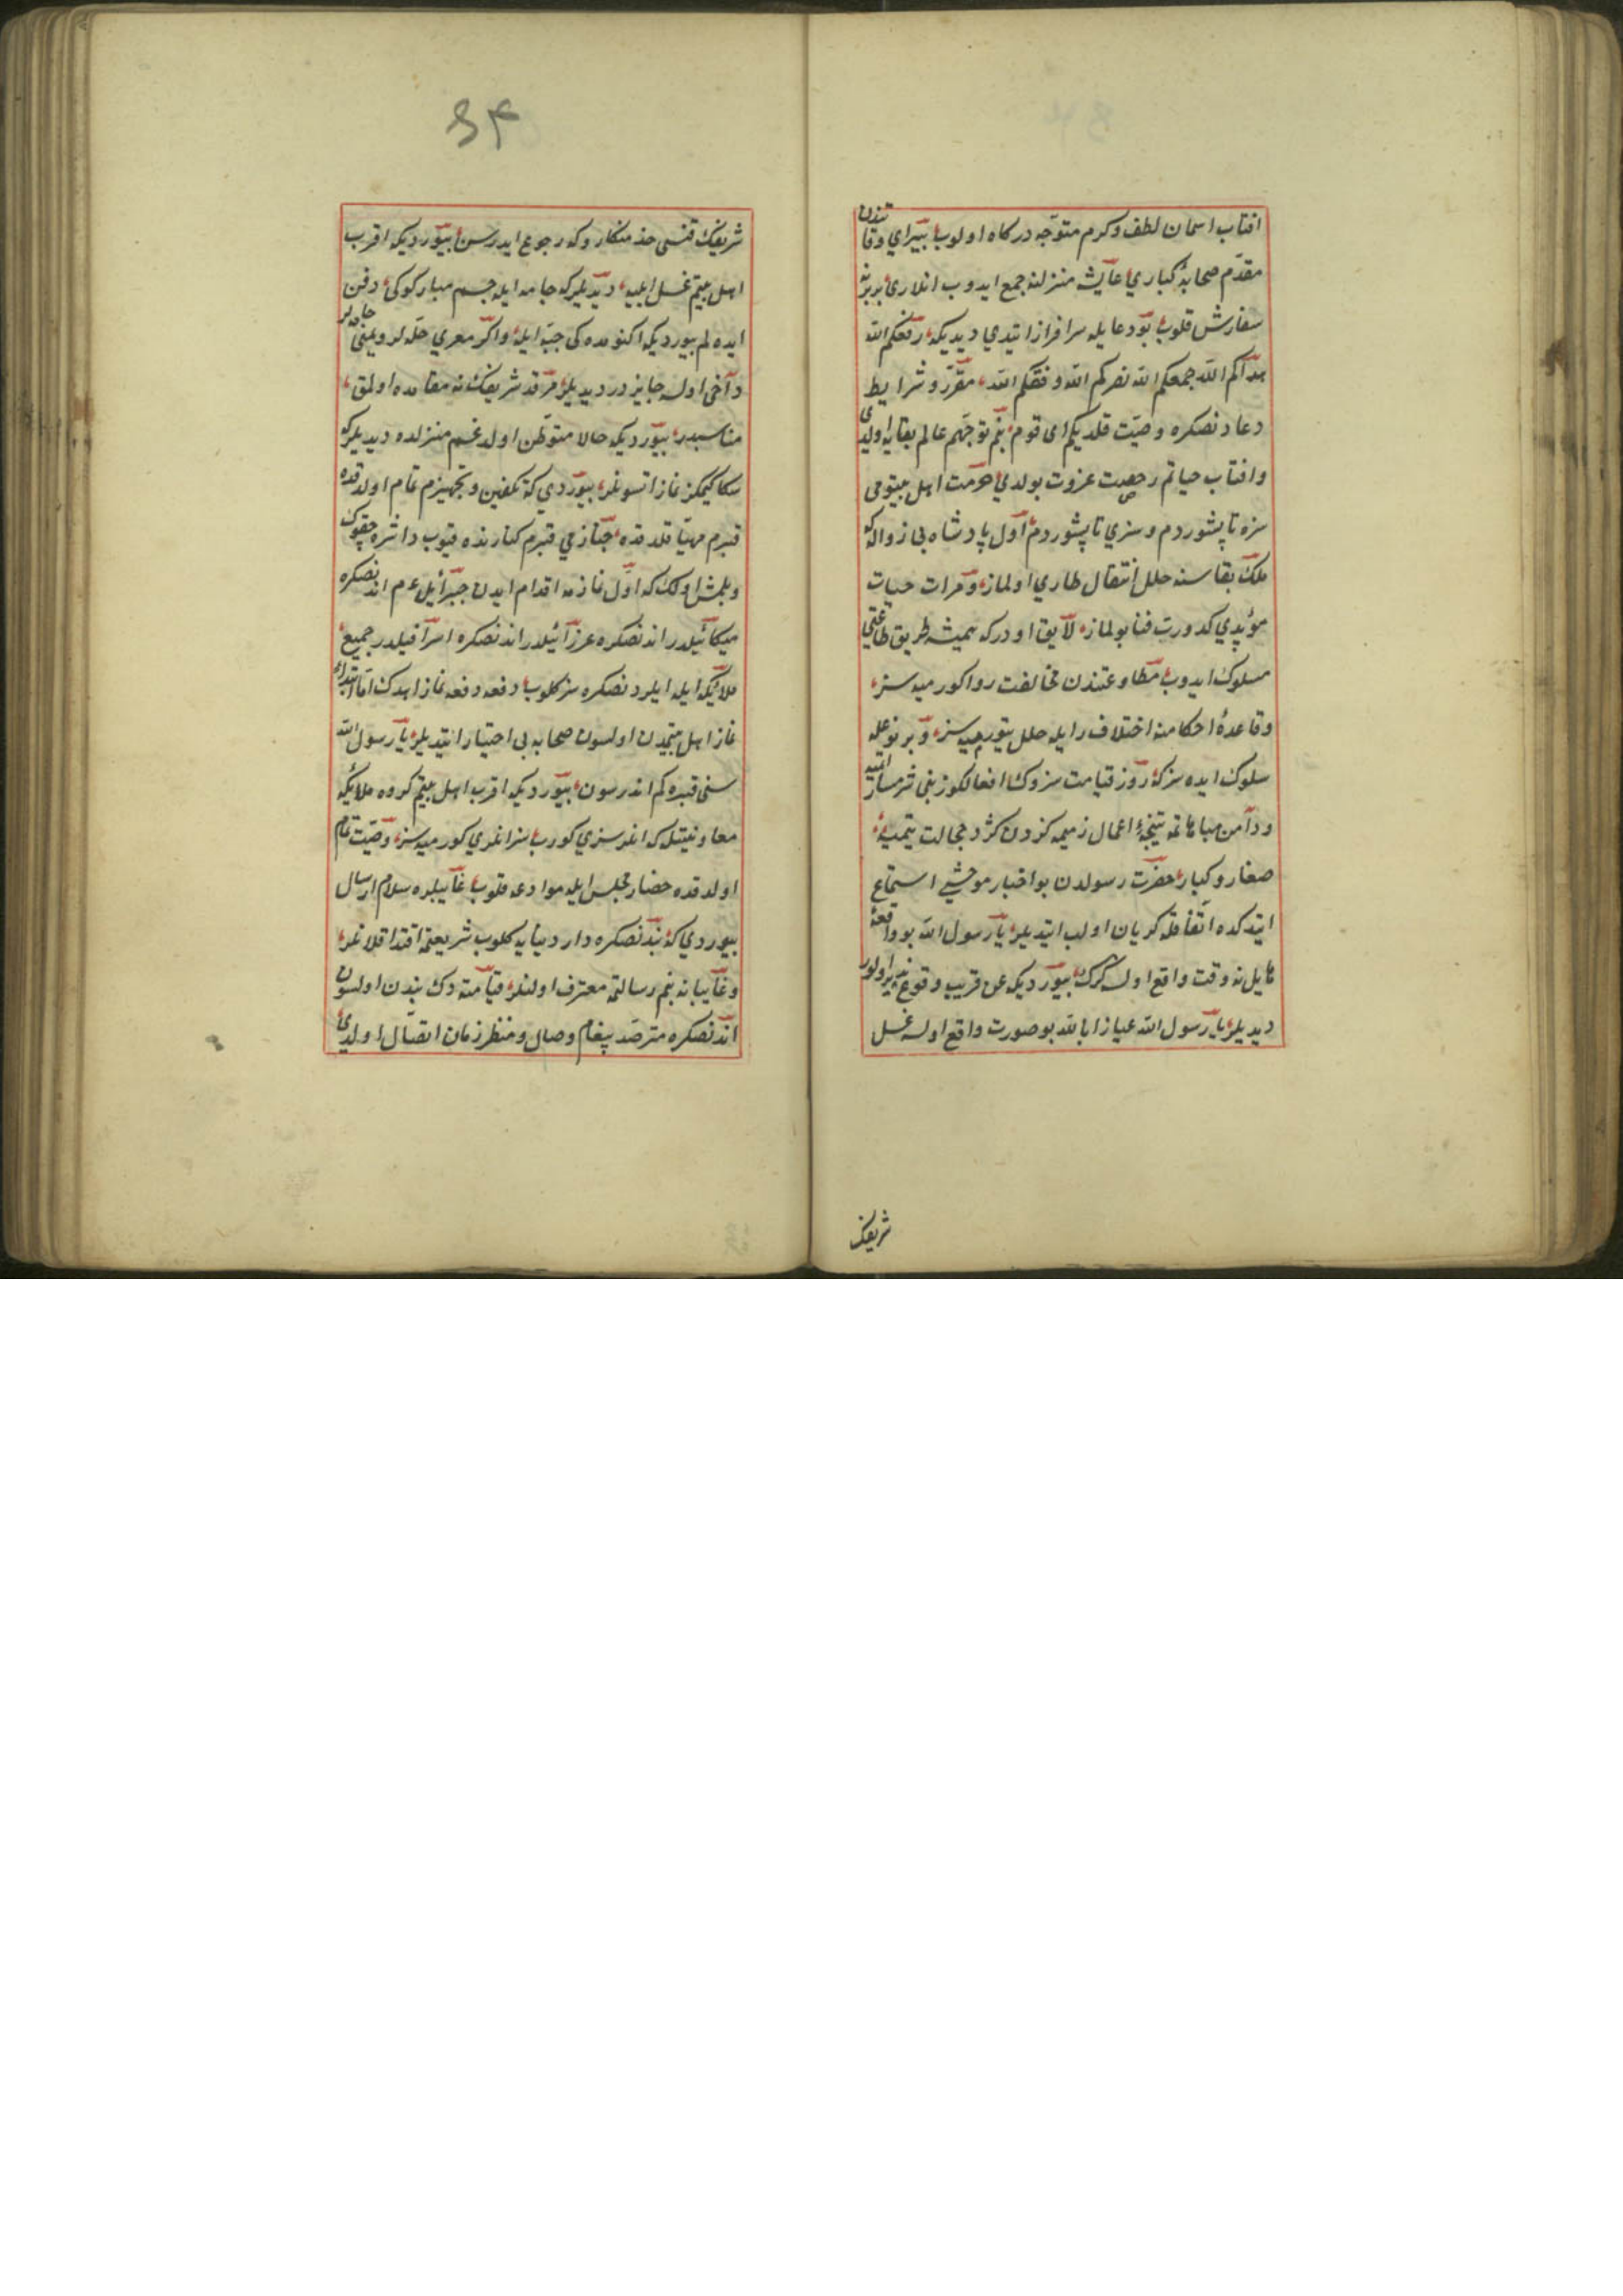 افتاب اسمان لطف وكرم متوجه دركاه اولوب بيراي وفاتندن
مقدم صحابهٔ كباري عايشه منزلنه جمع ايدوب انلاری بربرينه
سفارش قلوب بو دعايله سرافراز ايتدي ديديكه رفعكم الله
هداكم الله جمعكم الله نصركم الله وفقكم الله مقرر وشرايط
دعادنصكره وصيت قلديكم ای قوم بنم توجهم عالم بقايه اولدی
وافتاب حياتم رجعت غروب بولدي حرمت اهل بيتومی
سزه تاپشوردم وسزي تاپشوردم اول پادشاه بی زواله كه
ملك بقاسنه خلل انتقال طاري اولماز ومرات حيات
مؤبدي كدورت فنا بولماز لايق اودركه هميشه طريق طاعتی
مسلوك ايدوب مطاوعتندن مخالفت روا كورميه سز
وقاعدهٔ احكامنه اختلاف رايله خلل يتورميه سز وبر نوعله
سلوك ايده سزكه روز قيامت سزوك افعالكوز بنی شرمسار ايتميه
ودامن مباهاتمه نتيجهٔ اعمال ذميمه كزدن كرد خجالت يتميه
صغار وكبار حضرت رسولدن بو اخبار موحشی استماع
ايتدكده اتفاقله كريان اولب ايتديلر يا رسول الله بو واقعهٔ
هايل نه وقت واقع اولسه كرك بيورديكه عن قريب وقوع پذير اولور
ديديلر يا رسول الله عياذا بالله بو صورت واقع اولسه غسل
شريفك
شريفك قنسی خدمتكاروكه رجوع ايدرسن بيورديكه اقرب
اهل بيتم غسل ايليه ديديلركه جامه ايله جسم مباركوكی دفن
ايده لم بيورديكه اكنومده كی جبه ايله واكر مصري حله لر ويمنی جامه لر
دآخی اولسه جايزدر ديديلر مرقد شريفك نه مقامده اولمق
مناسبدر بيورديكه حالا متوطن اولدغم منزلده ديديلركه
سكا كيمكز نماز اتسونلر بيوردي كه تكفين وتجهيزم تمام اولدقده
قبرم مهيا قلدقده جنازمي قبرم كنارنده قيوب داشره چقوك
وبلمش اولك كه اول نازمه اقدام ايدن جبرائيل عم اندنصكره
ميكائيلدر اندنصكره عزرائيلدر اندنصكره اسرافيلدر جميع
ملايكه ايله ايلردنصكره سز كلوب دفعه دفعه نماز ايدك اما ابتداء
نماز اهل بيتمدن اولسون صحابه بی اختيار ايتديلر يا رسول الله
سنی قبره كم اندرسون بيورديكه اقرب اهل بيتم كروه ملايكه
معاونتيله كه انلر سزي كورب سز انلري كورميه سز وصيت تمام
اولدقده حضار مجلس ايله موادعه قلوب غايبلره سلام ارسال
بيوردي كه بندنصكره دار دنيايه كلوب شريعتمه اقتدا قلانلر
وغايبانه بنم رسالتمه معترف اولنلر قيامته دك بندن اولسون
اندنصكره مترصد پيغام وصال ومنتظر زمان اتصال اولدی
34